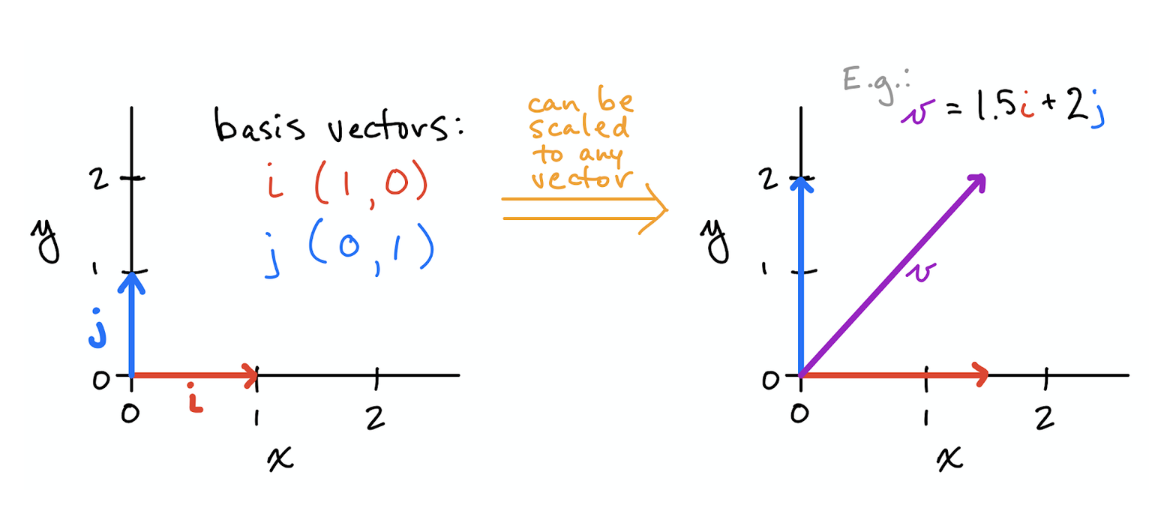 basis vectors:
i (1,0)
j (0,1)
2
y
1
j
0
i
0
1
2
x
can be
scaled
to any
vector
E.g.:
v = 1.5i + 2j
2
y
1
v
0
0
1
2
x